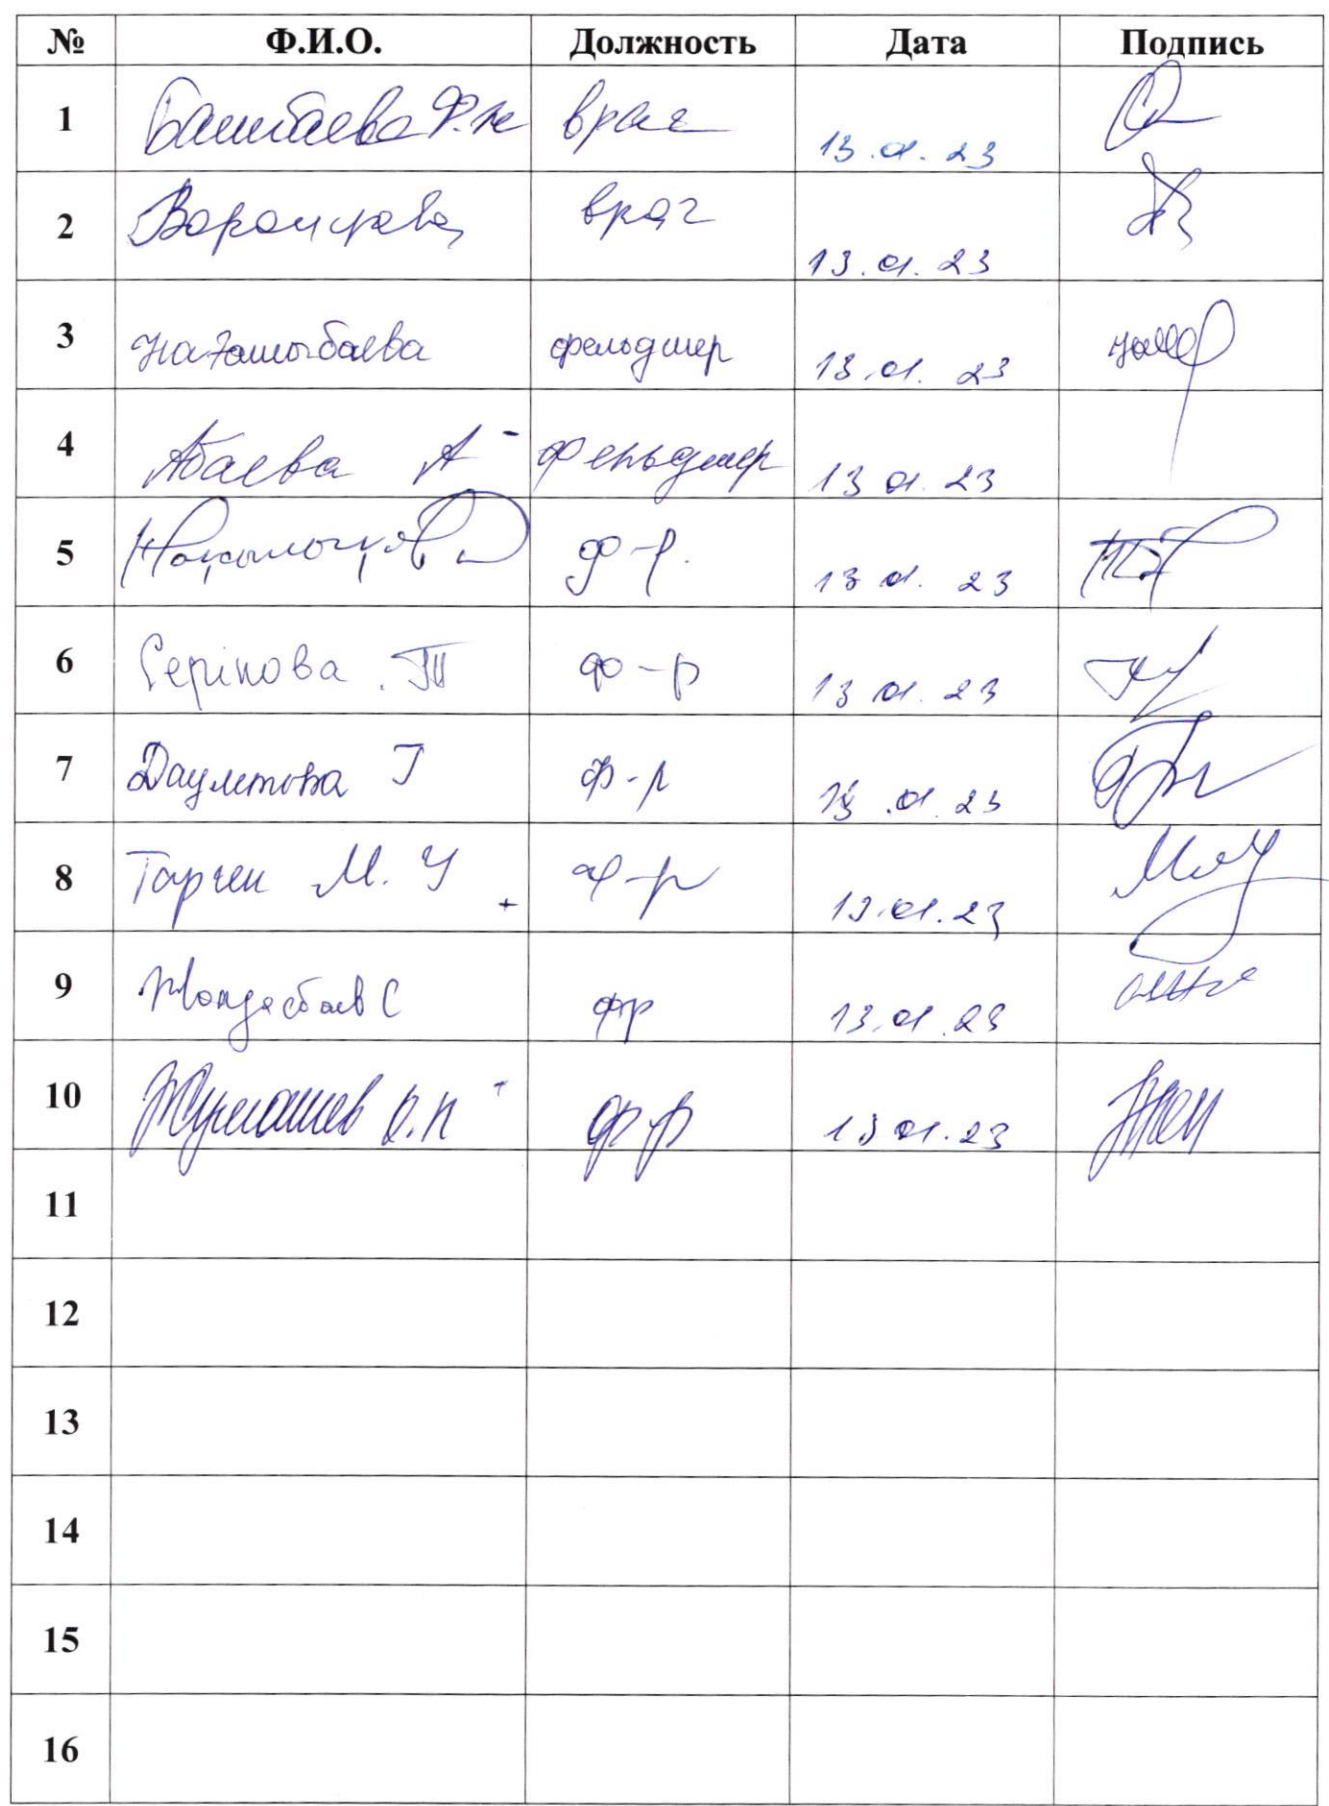 № Ф.И.О. Должность Дата Подпись
1 Башбаева Ф.К врач 13.01.23
2 Воронцова врач 13.01.23
3 фельдшер 13.01.23
4 Абаева А фельдшер 13 01.23
5 ф-р. 13 01. 23
6 Серікова . Т ф-р 13 01.23
7 Даулетова Г ф-р 13.01.23
8 М. У ф-р 13.01.23
9 С фр 13.01.23
10 Жумашев ф-р 13 01.23
11
12
13
14
15
16